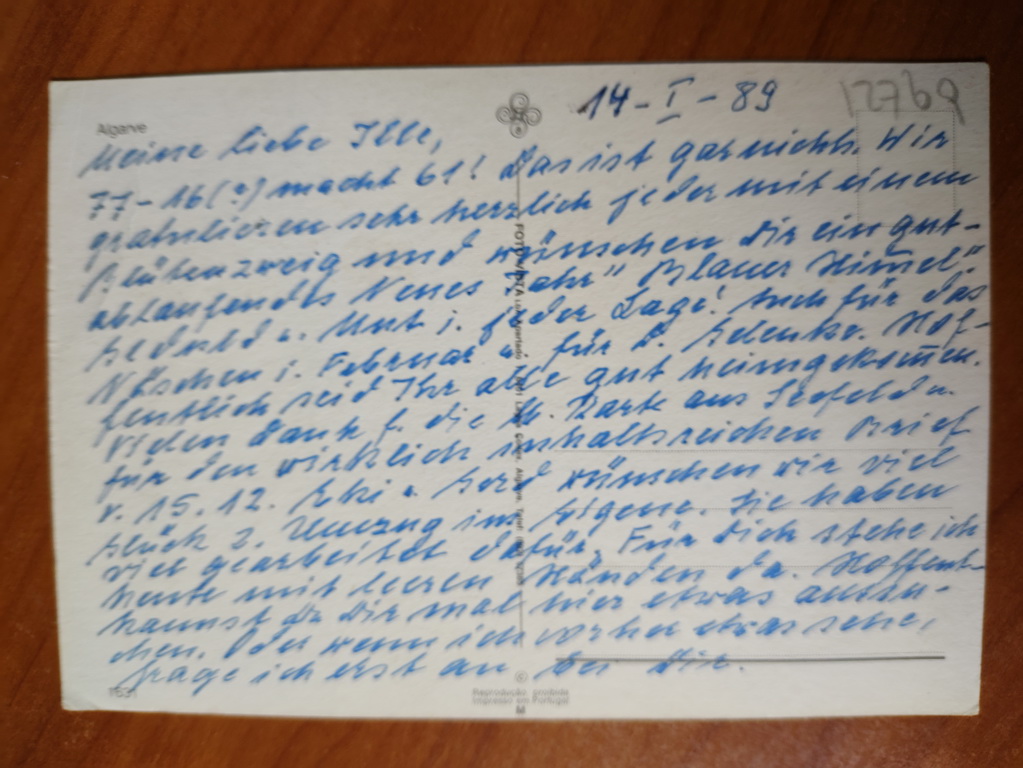 14-I-89
12769
Algarve
Meine liebe Ille,
77-16(?) macht 61! Das ist gar nichts. Wir
gratulieren sehr herzlich jeder mit einem
Blütenzweig und wünschen Dir ein gut-
ablaufendes Neues "Jahr" "Blauer Himmel"
Geduld u. Mut i. jeder Lage! Auch für das
Näschen i. Februar u. für D. Gelenke. Hof-
fentlich seid Ihr alle gut heimgekommen.
Vielen Dank f. die Karte aus Seefeld u.
für den wirklich inhaltsreichen Brief
v. 15.12. Eki u. Gerd wünschen wir viel
Glück z. Umzug ins Eigene. Sie haben
viel gearbeitet dafür. Für Dich stehe ich
heute mit leeren Händen da. Hoffent-
kannst Du Dir mal hier etwas aussu-
chen. Oder wenn ich vorher etwas sehe,
frage ich erst an bei Dir.
1631
©
Reprodução proibida
Impresso em Portugal
M
FOTO-VISTA